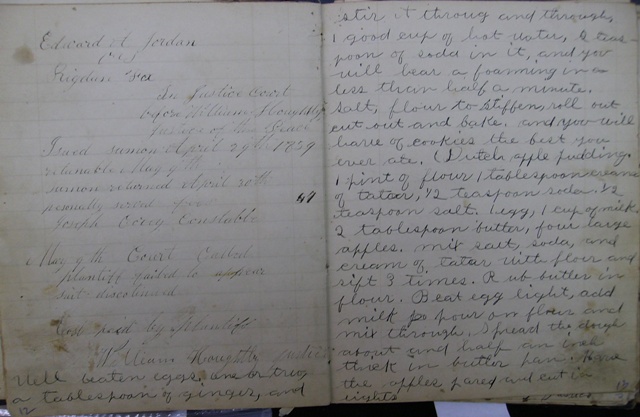 Edward H. Jordan
vs
Rigdan Fox
In Justice Court
before William Houghtby
Justice of the Peace
Issued sumon April 29th 1859
retunable May 9th
sumon returned April 30th
personally served
Joseph Constable
47
May 9th Court Called
plantiff failed to appear
suit discontinued
Cost paid by Plantiff
William Houghtby Justice
Well beaten eggs, one or two
a tablespoon of ginger, and
12
stir it throug and through,
1 good cup of hot water, 2 teas-
poon of soda in it, and you
will hear a foaming in
less than half a minute.
salt, flour to stiffen, roll out
cut out and bake. and you will
have of cookies the best you
ever ate. (Dutch apple pudding.
1 pint of flour 1 tablespoon cream
of tatar, 1/2 teaspoon soda. 1/2
teaspoon salt. 1 egg, 1 cup of milk
2 tablespoon butter, four large
apples. mix salt, soda, and
cream of tatar with flour and
sift 3 times. Rub butter in
flour. Beat egg light, add
milk pour on flour and
mix through. Spread the dough
about and half an inch
thick in butter pan. Have
the apples, pared and cut in
eights